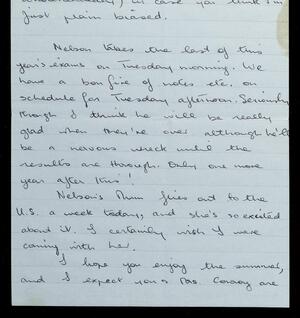 in case you think I'm
just plain biased.
Nelson takes the last of this
year's exams on Tuesday morning. We
have a bonfire of notes etc. on
schedule for Tuesday afternoon. Seriously
though I think he will be really
glad when they're over although he'll
be a nervous wreck until the
results are through. Only one more
year after this!
Nelson's Mum flies out to the
U.S. a week today, and she's so excited
about it. I certainly wish I were
coming with her.
I hope you enjoy the summer,
and I expect you & Mrs. Conroy are